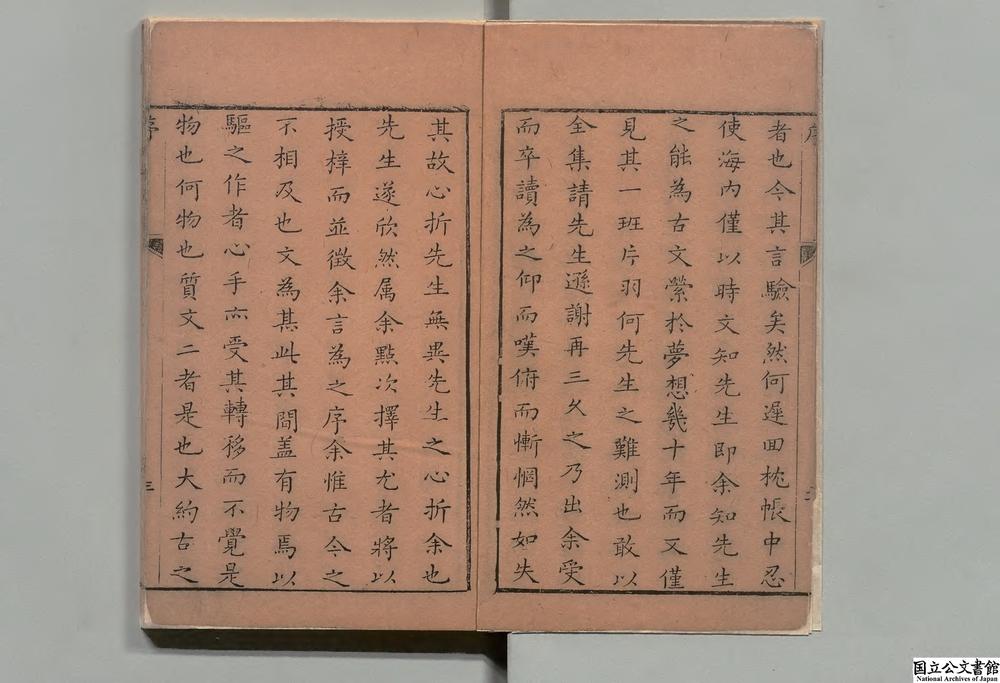 者也今其言驗矣然何遲回枕帳中忍
使海內僅以時文知先生即余知先生
之能為古文縈於夢想幾十年而又僅
見其一班片羽何先生之難測也敢以
全集請先生遜謝再三久之乃出余受
而卒讀為之仰而嘆俯而慚惘然如失
其故心折先生無異先生之心折余也
先生遂欣然属余點次擇其尤者將以
授梓而並徵余言為之序余惟古今之
不相及也文為甚此其間盖有物焉以
驅之作者心手亦受其轉移而不覺是
物也何物也質文二者是也大約古之
序
三
国立公文書館
National Archives of Japan